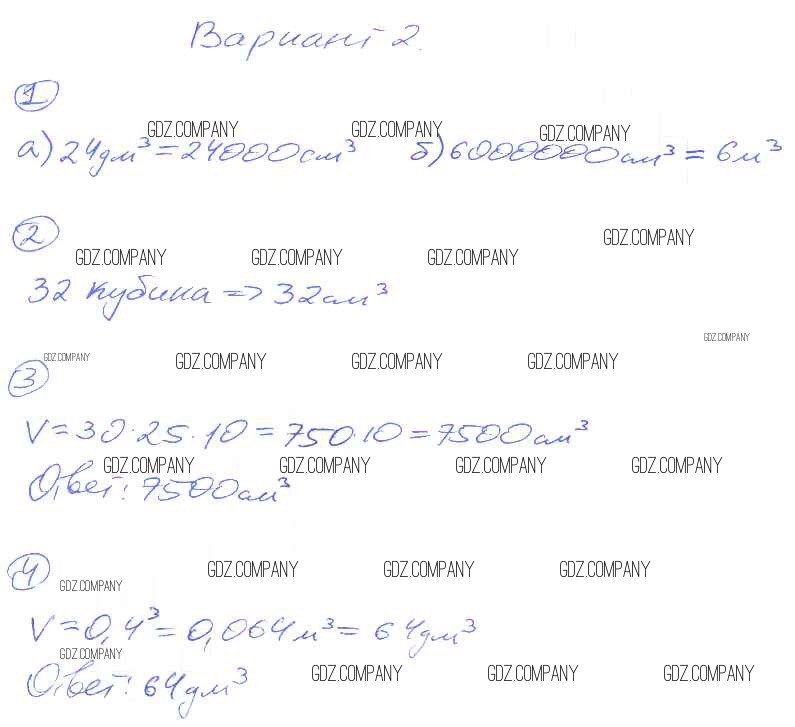 Вариант 2.
1
GDZ.COMPANY GDZ.COMPANY GDZ.COMPANY
а) 24дм³ = 24000см³ б) 6000000см³ = 6м³
2
GDZ.COMPANY GDZ.COMPANY GDZ.COMPANY GDZ.COMPANY
32 кубика => 32см³
GDZ.COMPANY GDZ.COMPANY GDZ.COMPANY GDZ.COMPANY GDZ.COMPANY
3
V = 30 · 25 · 10 = 750 · 10 = 7500см³
GDZ.COMPANY GDZ.COMPANY GDZ.COMPANY GDZ.COMPANY
Ответ: 7500см³
4
GDZ.COMPANY GDZ.COMPANY GDZ.COMPANY GDZ.COMPANY
V = 0,4³ = 0,064м³ = 64дм³
GDZ.COMPANY GDZ.COMPANY GDZ.COMPANY GDZ.COMPANY
Ответ: 64дм³